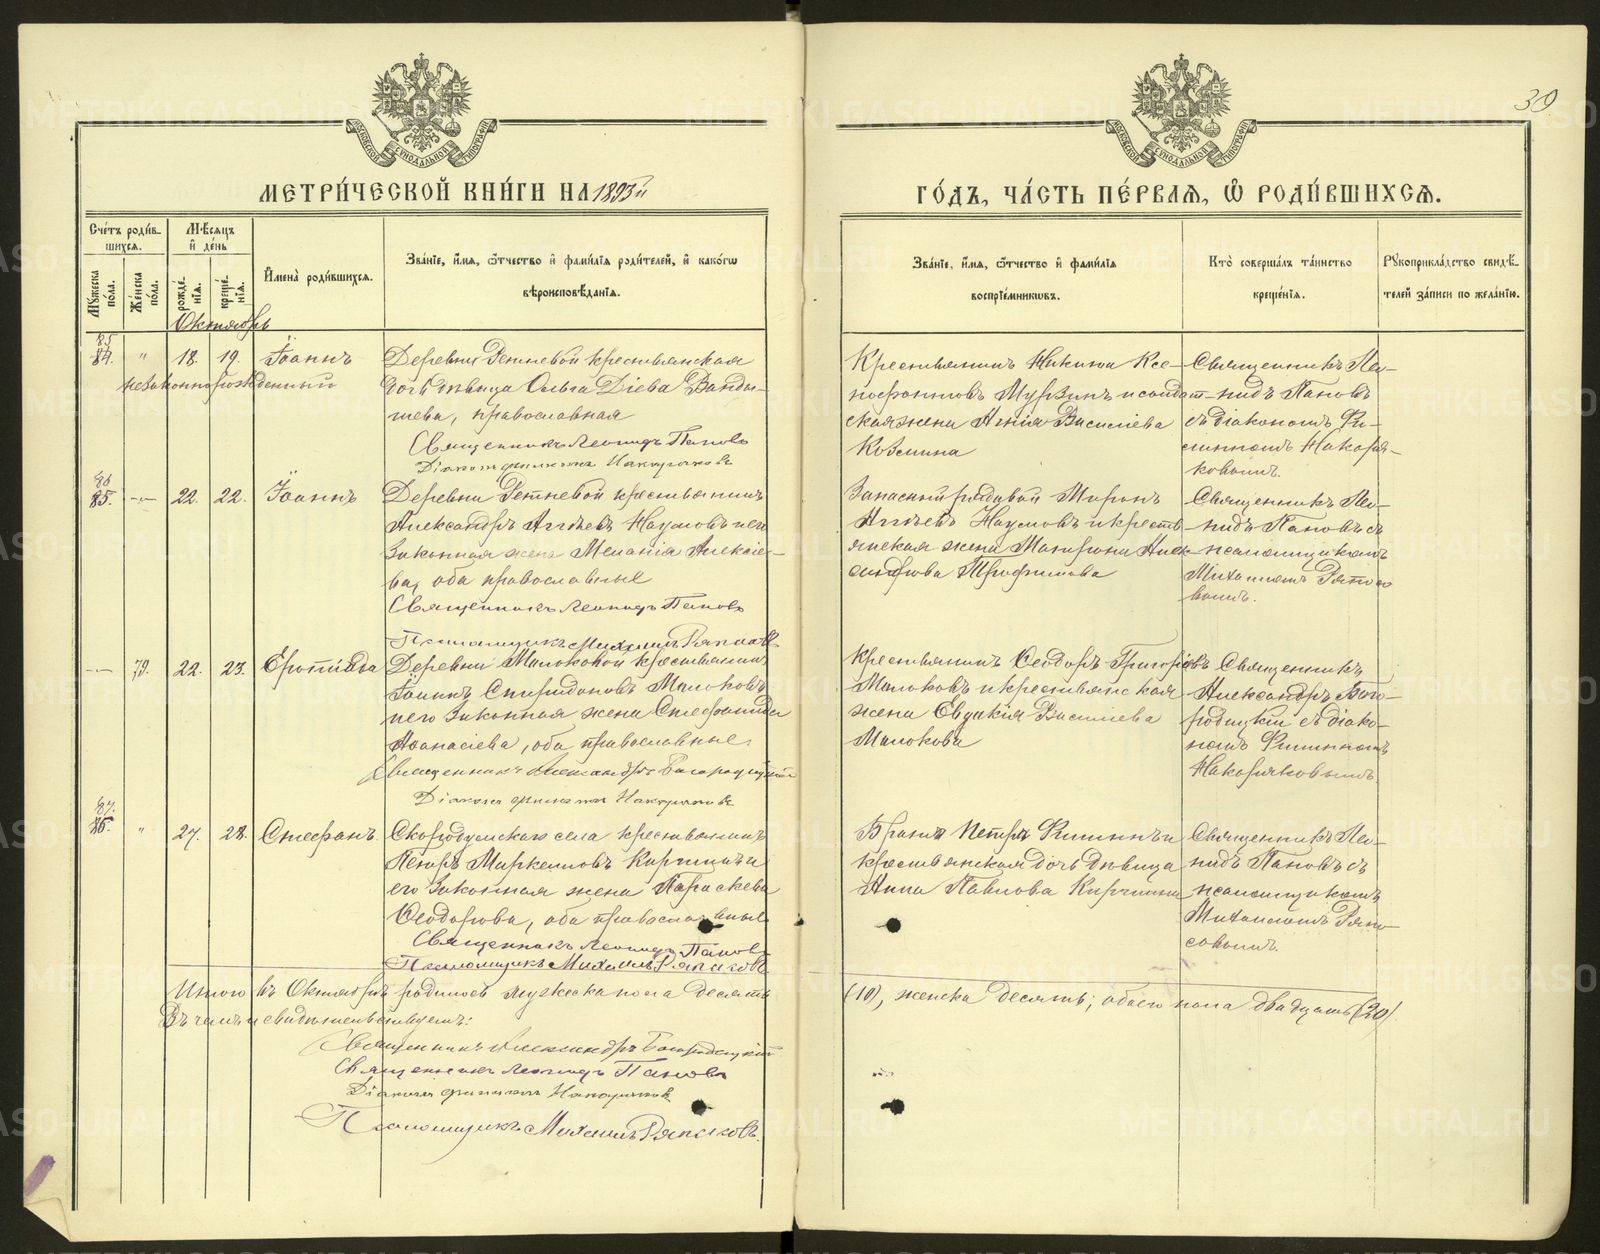 30
МОСКОВСКОЙ СѴНОДАЛЬНОЙ ТИПОГРАФІИ
МОСКОВСКОЙ СѴНОДАЛЬНОЙ ТИПОГРАФІИ
МЕТРИ́ЧЕСКОЙ КНИ́ГИ НА 1893й
ГО́ДЪ, ЧА́СТЬ ПЕ́РВАѦ, Ѡ҆ РОДИ́ВШИХСѦ.
Сче́тъ роди́в-
шихсѧ.
Мꙋжеска по́ла.
Же́нска по́ла.
Мѣ́сѧцъ
и҆ де́нь
рожде́-
нїѧ.
креще́-
нїѧ.
И҆мена̀ роди́вшихсѧ.
Зва́нїе, и҆́мѧ, ѻ҆́тчество и҆ фами́лїѧ роди́телей, и҆ како́гѡ
вѣроисповѣ́данїѧ.
Зва́нїе, и҆́мѧ, ѻ҆́тчество и҆ фами́лїѧ
воспрїе́мникѡвъ.
Кто̀ соверша́лъ та́инство
креще́нїѧ.
Рꙋкоприкла́дство свидѣ́-
телей за́писи по жела́нїю.
Октябрь
85
84. " 18. 19. Іоаннъ
незаконнорожденный
Деревни Ретневой крестьянская
дочь дѣвица Ольга Діева Ванды-
шева, православная
Священникъ Леонидъ Паповъ
Діаконъ Филиппъ Накоряковъ
Крестьянинъ Никита Ксе-
нофонтовъ Мурзинъ и солдат-
ская жена Агнія Василіева
Козмина
Священникъ Лео-
нидъ Паповъ
съ діакономъ Фи-
липпомъ Накоря-
ковымъ.
86
85. — 22. 22. Іоаннъ
Деревни Ретневой крестьянинъ
Александръ Наумовъ и его
законная жена Меланія Алексіе-
ва, оба православные
Священникъ Леонидъ Паповъ
Псаломщикъ Михаилъ Ряпасовъ
Запасный рядовой Миронъ
Наумовъ и крестья-
янская жена Матрона Алек-
сандрова Трофимова
Священникъ Лео-
нидъ Паповъ съ
псаломщикомъ
Михаиломъ Ряпасо
вымъ.
— 79. 22. 23. Еротіида
Деревни Милоковой крестьянинъ
Іоаннъ Спиридоновъ Милоковъ
и его законная жена Стефанида
Аѳанасіева, оба православные.
Священникъ Александръ Богородицкій
Діаконъ Филиппъ Накоряковъ
Крестьянинъ Ѳеодоръ Григоріевъ
Милоковъ и крестьянская
жена Евдокія Василіева
Милокова
Священникъ
Александръ Бого-
родицкій съ діако-
номъ Филиппомъ
Накоряковымъ
87.
86. " 27. 28. Стефанъ
Скородумскаго села крестьянинъ
Петръ Маркелловъ Киргинъ и
его законная жена Параскева
Ѳеодорова, оба православные
Священникъ Леонидъ Паповъ
Псаломщикъ Михаилъ Ряпасовъ
Петръ Филинъ и
крестьянская дочь дѣвица
Анна Павлова Киргина
Священникъ Лео-
нидъ Паповъ съ
псаломщикомъ
Михаиломъ Ряпа-
совымъ.
Итого въ Октябрѣ родилось мужеска пола десять
(10), женска десять; обоего пола двадцать (20).
Въ чемъ и свидѣтельствуемъ:
Священникъ Александръ Богородицкій
Священникъ Леонидъ Паповъ
Діаконъ Филиппъ Накоряковъ
Псаломщикъ Михаилъ Ряпасовъ.
METRIKI.GASO-URAL.RU